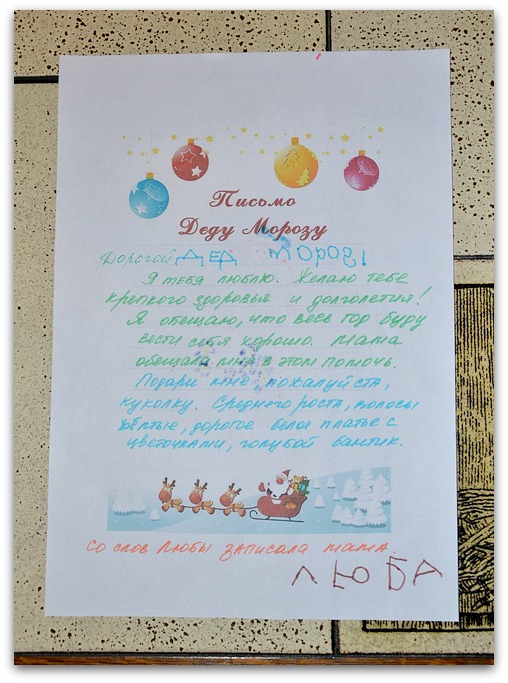 Письмо
Деду Морозу
Дорогой ДЕД МОРОЗ!
Я тебя люблю. Желаю тебе
крепкого здоровья и долголетия!
Я обещаю, что весь год буду
вести себя хорошо. Мама
обещала мне в этом помочь.
Подари мне, пожалуйста,
куколку. Среднего роста, волосы
жёлтые, дорогое белое платье с
цветочками, голубой бантик.
Со слов Любы записала мама
ЛЮБА